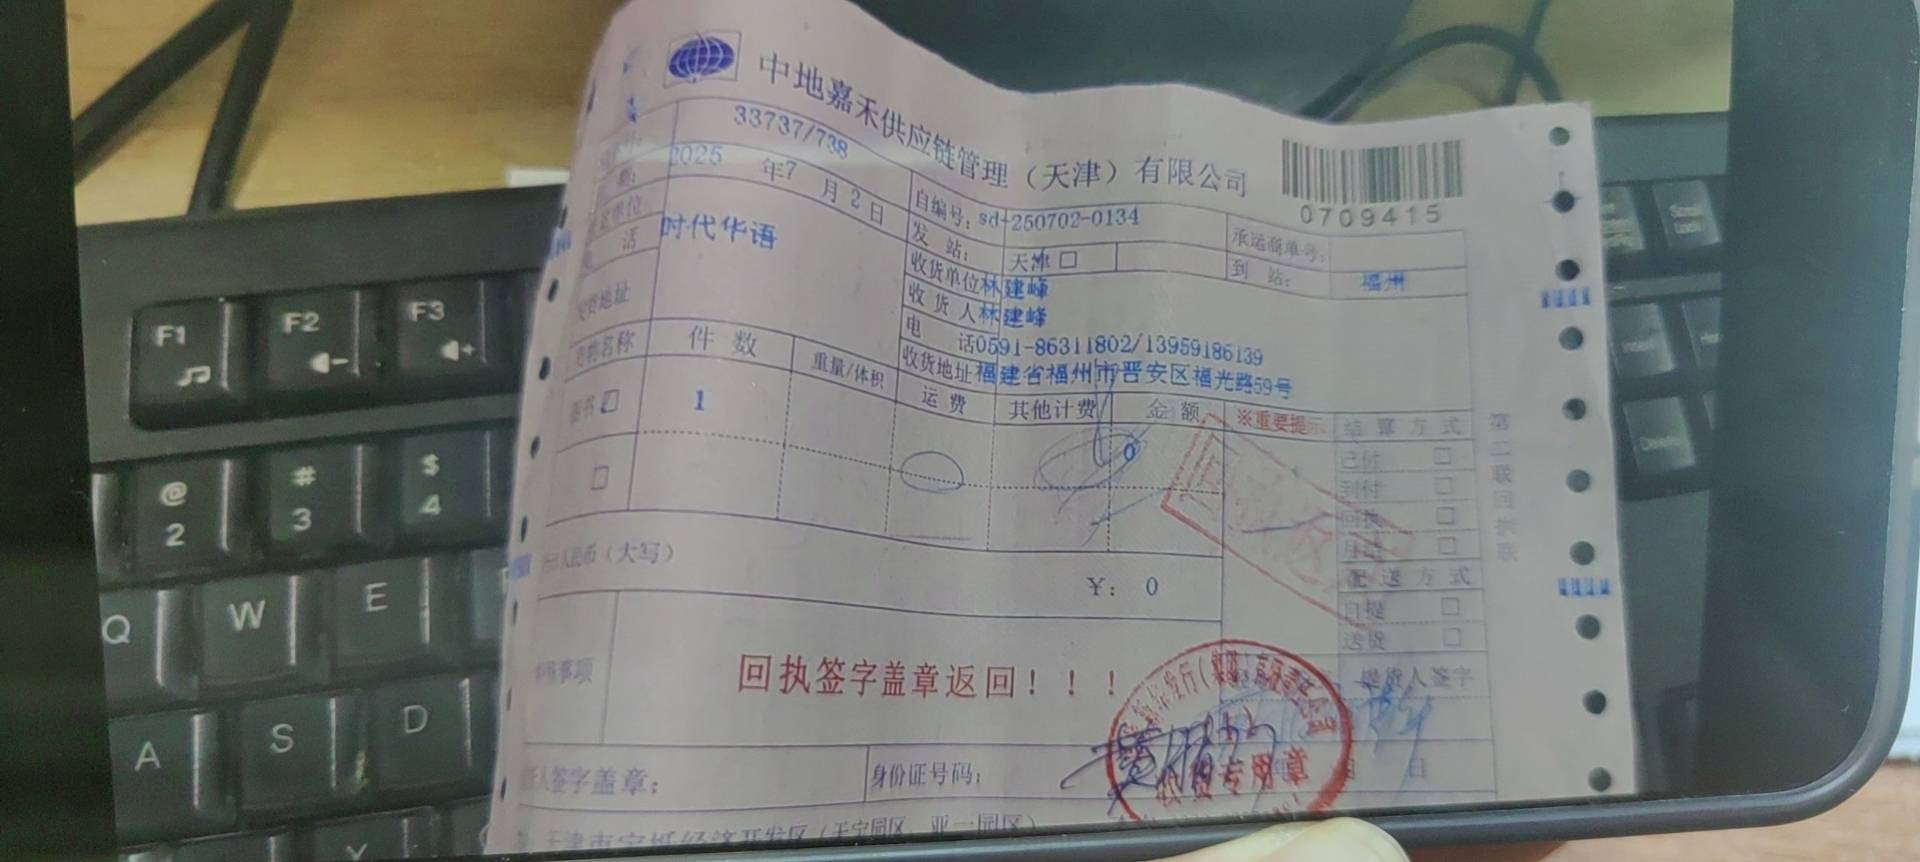 中地嘉禾供应链管理（天津）有限公司
0709415
33737/738
自编号：sd-250702-0134
承运商单号：
2025 年7 月 2 日
发 站： 天津 □
到 站： 福州
单位 时代华语
话
收货单位林建峰
收 货 人林建峰
电 话0591-86311802/13959186139
地址
收货地址福建省福州市晋安区福光路59号
货物名称 件 数 重量/体积 运 费 其他计费 金 额 ※重要提示 结 算 方 式
书 1 0
已付 □
到付 □
回执 □
月结 □
人民币（大写） ￥： 0
配 送 方 式
自提 □
送货 □
事项 回执签字盖章返回！！！
提货人签字
人签字盖章： 身份证号码： 月 日
收货专用章
第二联回执联
天津市宝坻经济开发区（天宝园区、亚一园区）
F1 F2 F3
@ 2 # 3 $ 4
Q W E
A S D